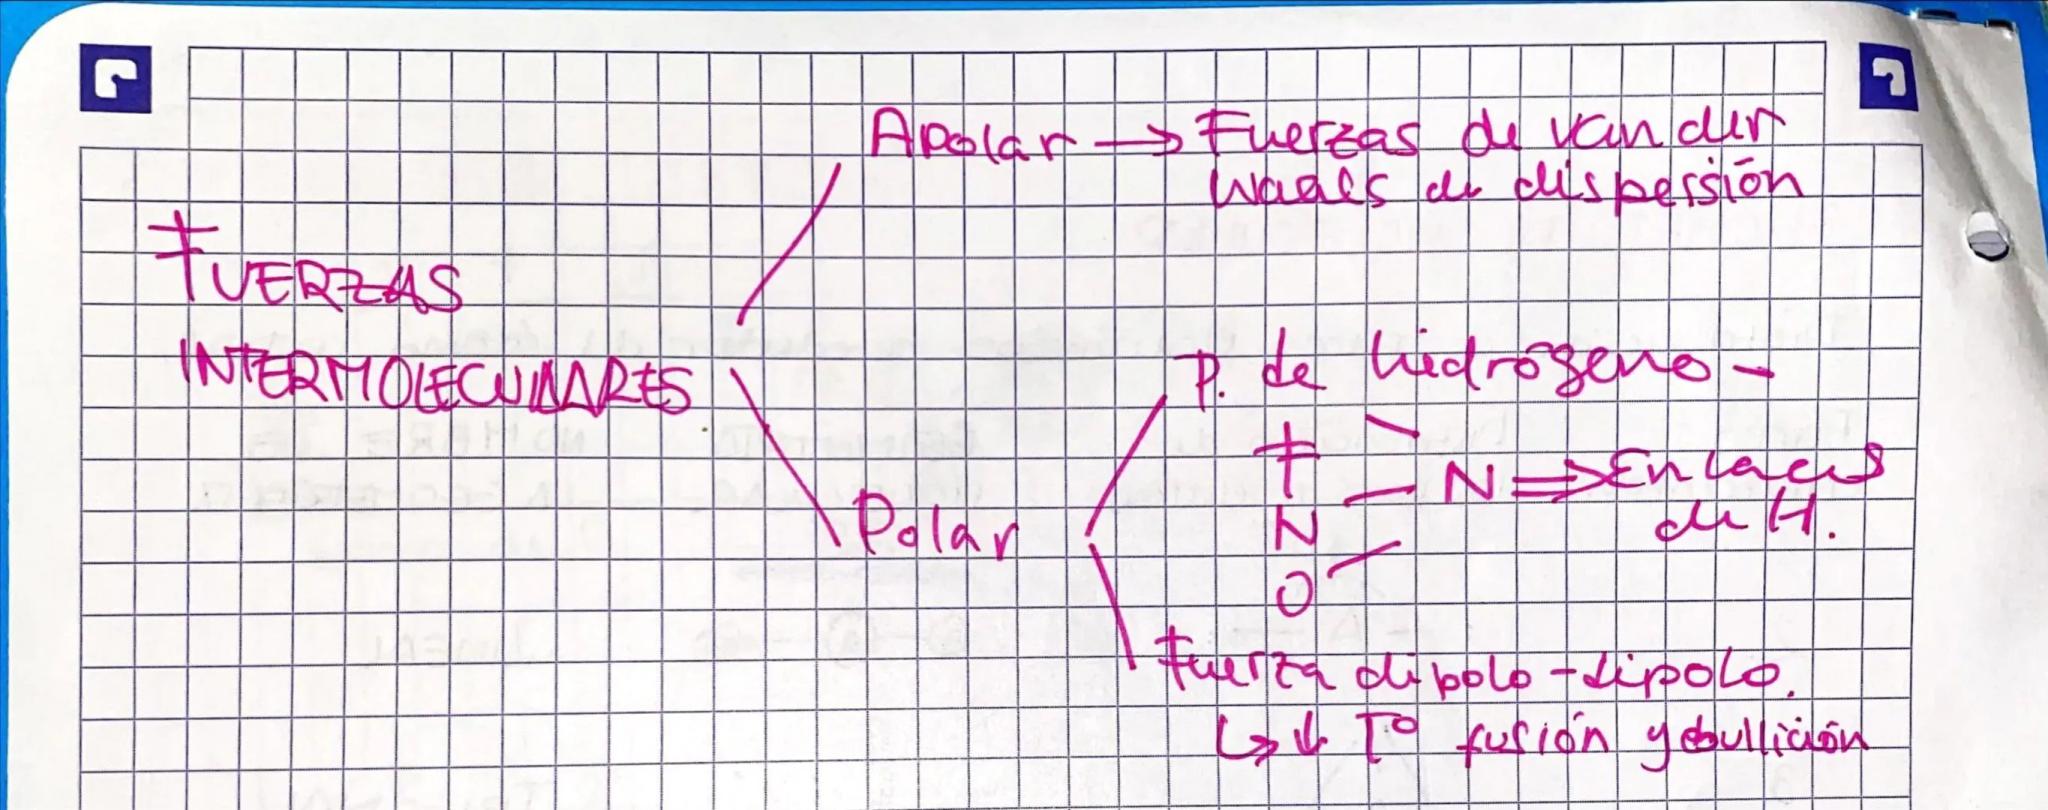 Apolar → Fuerzas de van der
Waals de dispersión
FUERZAS
INTERMOLECULARES
P. de hidrógeno -
F
N - N ⇒ Enlaces
de H.
O
Polar
Fuerza dipolo-dipolo.
↳ ↓ Tº fusión y ebullición